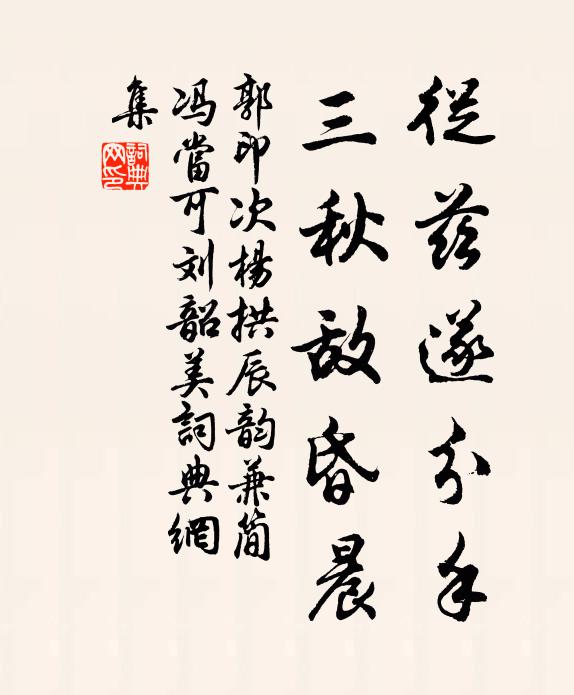 從茲遂分手
三秋敌昏晨
郭印次楊拱辰韵兼简
冯當可刘韶美詞典網
集
詞典
网印